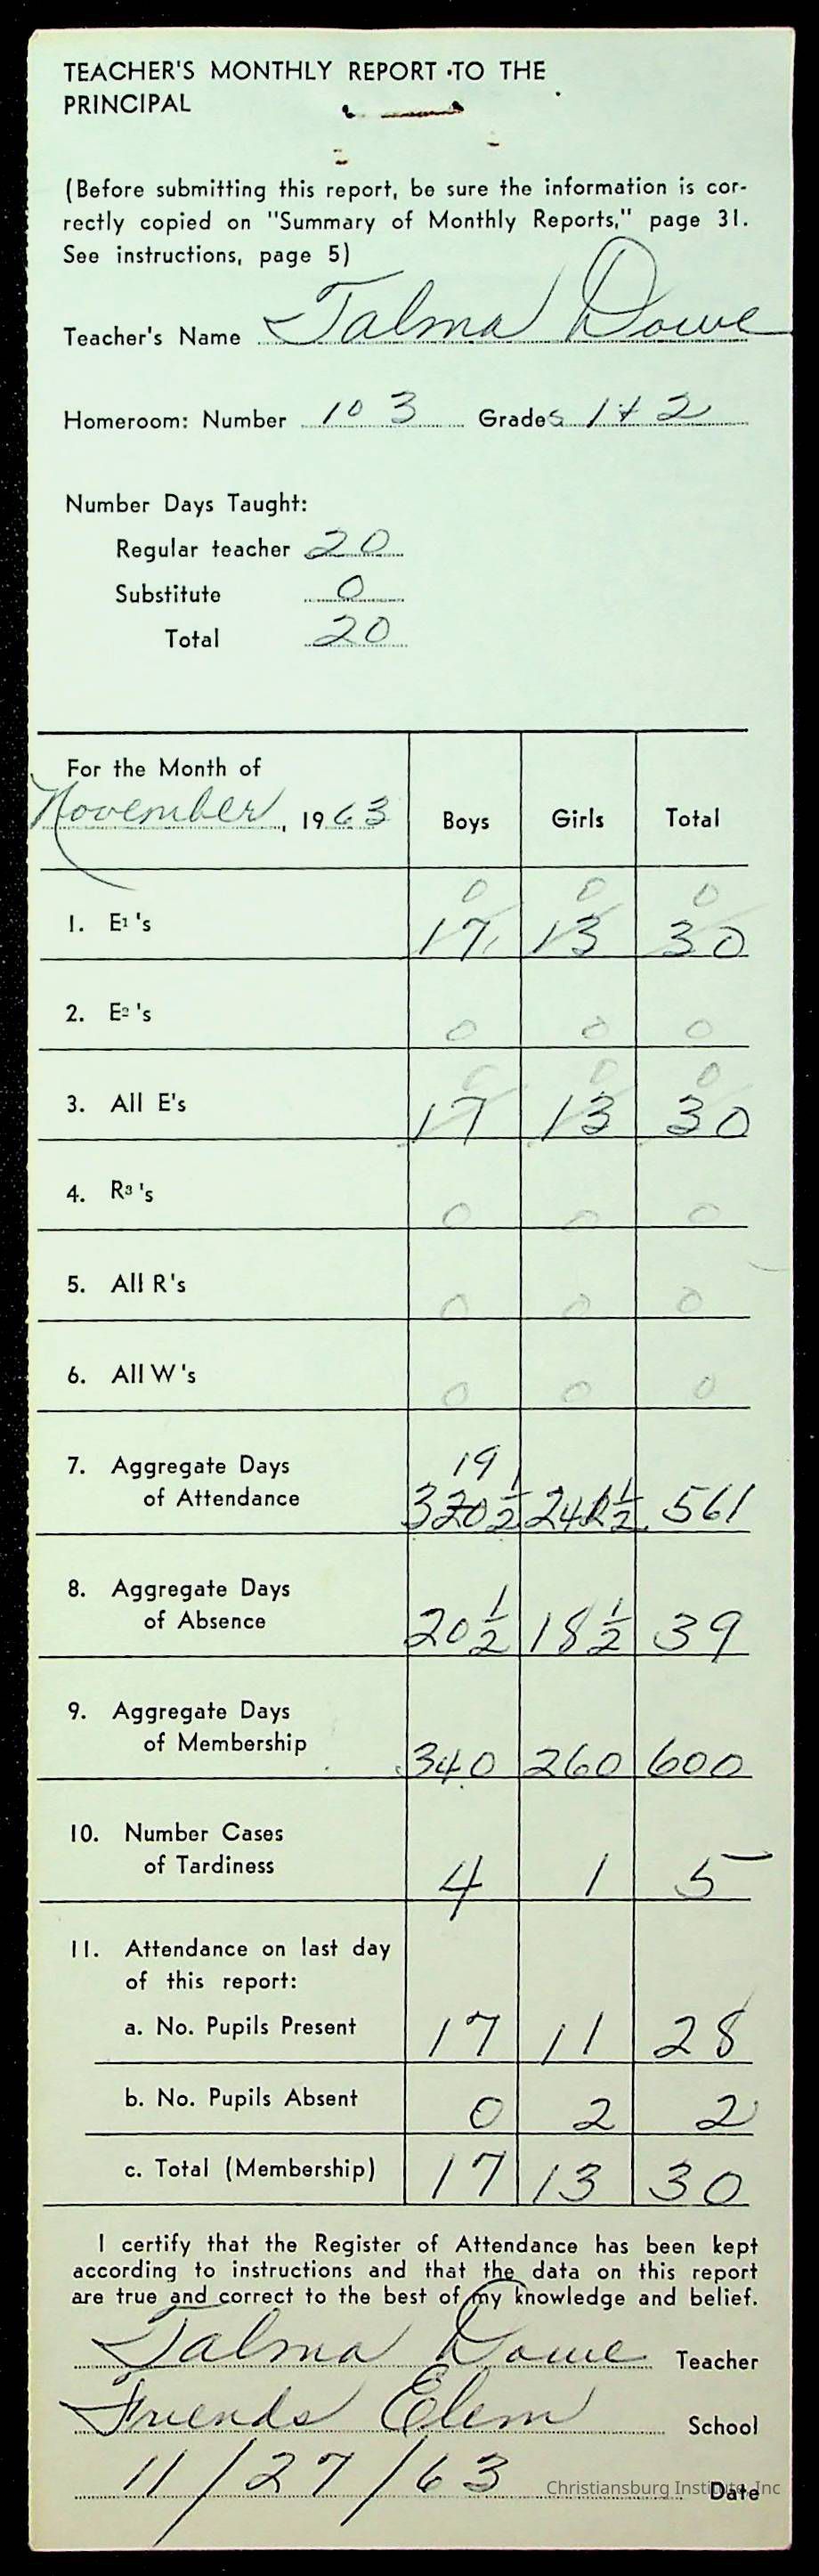 TEACHER'S MONTHLY REPORT TO THE
PRINCIPAL
(Before submitting this report, be sure the information is cor-
rectly copied on "Summary of Monthly Reports," page 31.
See instructions, page 5)
Teacher's Name Talma Dowe
Homeroom: Number 103 Grades 1 + 2
Number Days Taught:
Regular teacher 20
Substitute 0
Total 20
For the Month of
November, 1963 Boys Girls Total
0 0 0
1. E1's 17 13 30
2. E2's 0 0 0
0 0 0
3. All E's 17 13 30
4. R3's 0 0 0
5. All R's 0 0 0
6. All W's 0 0 0
7. Aggregate Days 19
of Attendance 320 1/2 241 1/2 561
8. Aggregate Days
of Absence 20 1/2 18 1/2 39
9. Aggregate Days
of Membership 340 260 600
10. Number Cases
of Tardiness 4 1 5
11. Attendance on last day
of this report:
a. No. Pupils Present 17 11 28
b. No. Pupils Absent 0 2 2
c. Total (Membership) 17 13 30
I certify that the Register of Attendance has been kept
according to instructions and that the data on this report
are true and correct to the best of my knowledge and belief.
Talma Dowe Teacher
Friends Elem School
11/27/63 Date
Christiansburg Institute, Inc